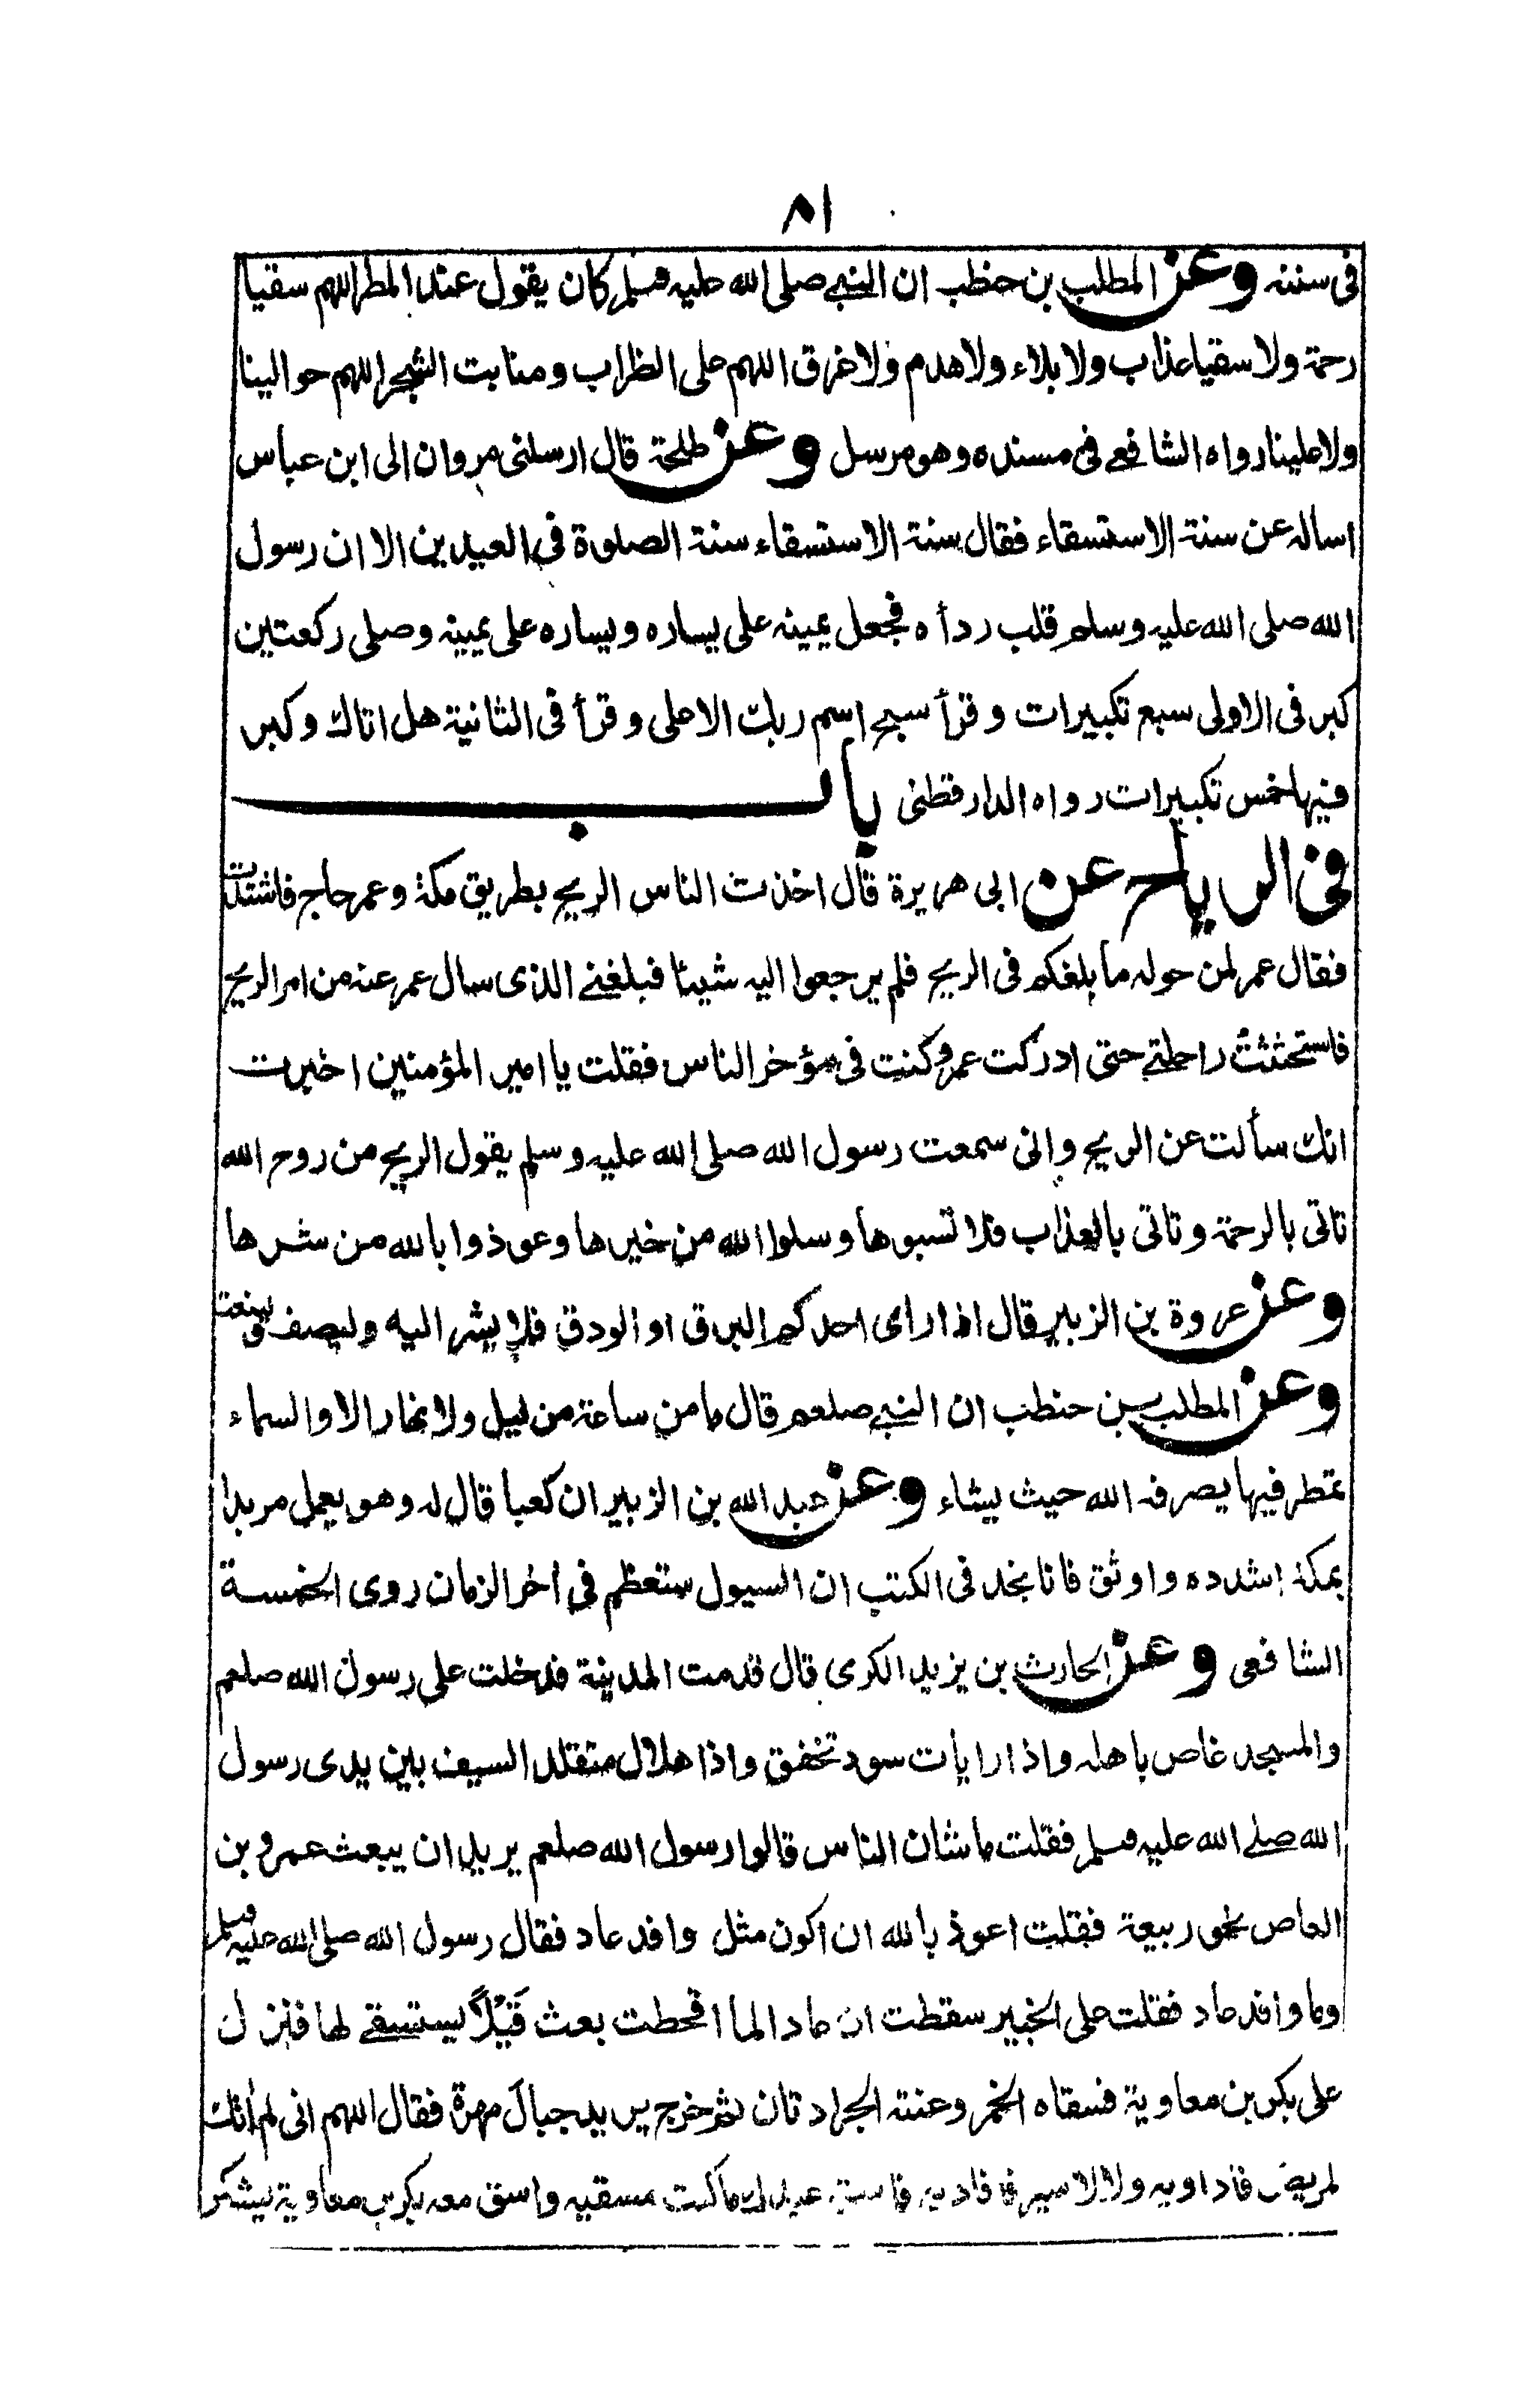 ٨١
فى سننه وعن المطلب بن حنطب ان النبي صلى الله عليه وسلم كان يقول عند المطر اللهم سقيا
رحمة ولا سقيا عذاب ولا بلاء ولا هدم ولا غرق اللهم على الظراب ومنابت الشجر اللهم حوالينا
ولا علينا رواه الشافعي فى مسنده وهو مرسل وعن طلحة قال ارسلنى مروان الى ابن عباس
اساله عن سنة الاستسقاء فقال سنة الاستسقاء سنة الصلوة فى العيدين الا ان رسول
الله صلى الله عليه وسلم قلب ردأه فجعل يمينه على يساره ويساره على يمينه وصلى ركعتين
كبر فى الاولى سبع تكبيرات وقرأ سبح اسم ربك الاعلى وقرأ فى الثانية هل اتاك وكبر
فيها خمس تكبيرات رواه الدارقطنى باب
فى الرياح عن ابى هريرة قال اخذت الناس الريح بطريق مكة وعمر حاج فاشتدت
فقال عمر لمن حوله ما بلغكم فى الريح فلم يرجعوا اليه شيئا فبلغنے الذى سال عمر عنه من امر الريح
فاستحثثت راحلتے حتى ادركت عمر وكنت فى مؤخر الناس فقلت يا امير المؤمنين اخبرت
انك سألت عن الريح وانى سمعت رسول الله صلى الله عليه وسلم يقول الريح من روح الله
تاتى بالرحمة وتاتى بالعذاب فلا تسبوها وسلوا الله من خيرها وعوذوا بالله من شرها
وعن عروة بن الزبير قال اذا راى احدكم البرق او الودق فلا يشر اليه وليصف ولينعت
وعن المطلب بن حنطب ان النبے صلعم قال ما من ساعة من ليل ولا نهار الا والسماء
تمطر فيها يصرفه الله حيث يشاء وعن عبد الله بن الزبير ان كعبا قال له وهو يعمل مربدا
بمكة اشدده واوثق فانا نجد فى الكتب ان السيول ستعظم فى اخر الزمان روى الخمسة
الشافعى وعن الحارث بن يزيد الكرى قال قدمت المدينة فدخلت على رسول الله صلعم
والمسجد غاص باهله واذا رايات سود تخفق واذا هلال متقلد السيف بين يدى رسول
الله صلے الله عليه وسلم فقلت ما شان الناس قالوا رسول الله صلعم يريد ان يبعث عمرو بن
العاص نحو ربيعة فقلت اعوذ بالله ان اكون مثل وافد عاد فقال رسول الله صلى الله عليه وسلم
وما وافد عاد فقلت على الخبير سقطت ان عادا لما اقحطت بعث قَيْلاً يستسقے لها فنزل
على بكر بن معاوية فسقاه الخمر وعنته الجرادتان ثم خرج يريد جبال مهرة فقال اللهم انى لم اتك
لمريض فاداويه ولا لاسير فافاديه فاسق عبدك ما كنت مسقيه واسق معه بكر بن معاوية يشكر